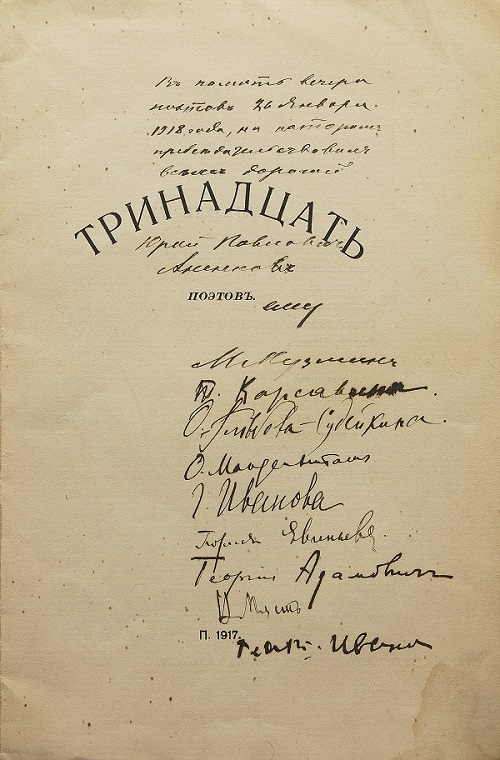 Въ память вечера
поэтовъ 26 Января
1918 года, на которомъ
председательствовалъ
всѣмъ дорогой
ТРИНАДЦАТЬ
Юрий Павловичъ
Анненковъ
ПОЭТОВЪ.
ему
М Кузминъ
Карсавина
О. Глѣбова-Судейкина.
О. Мандельштамъ
Г. Иванова
Георгий Адамовичъ
П. 1917.
Георг. Иванов